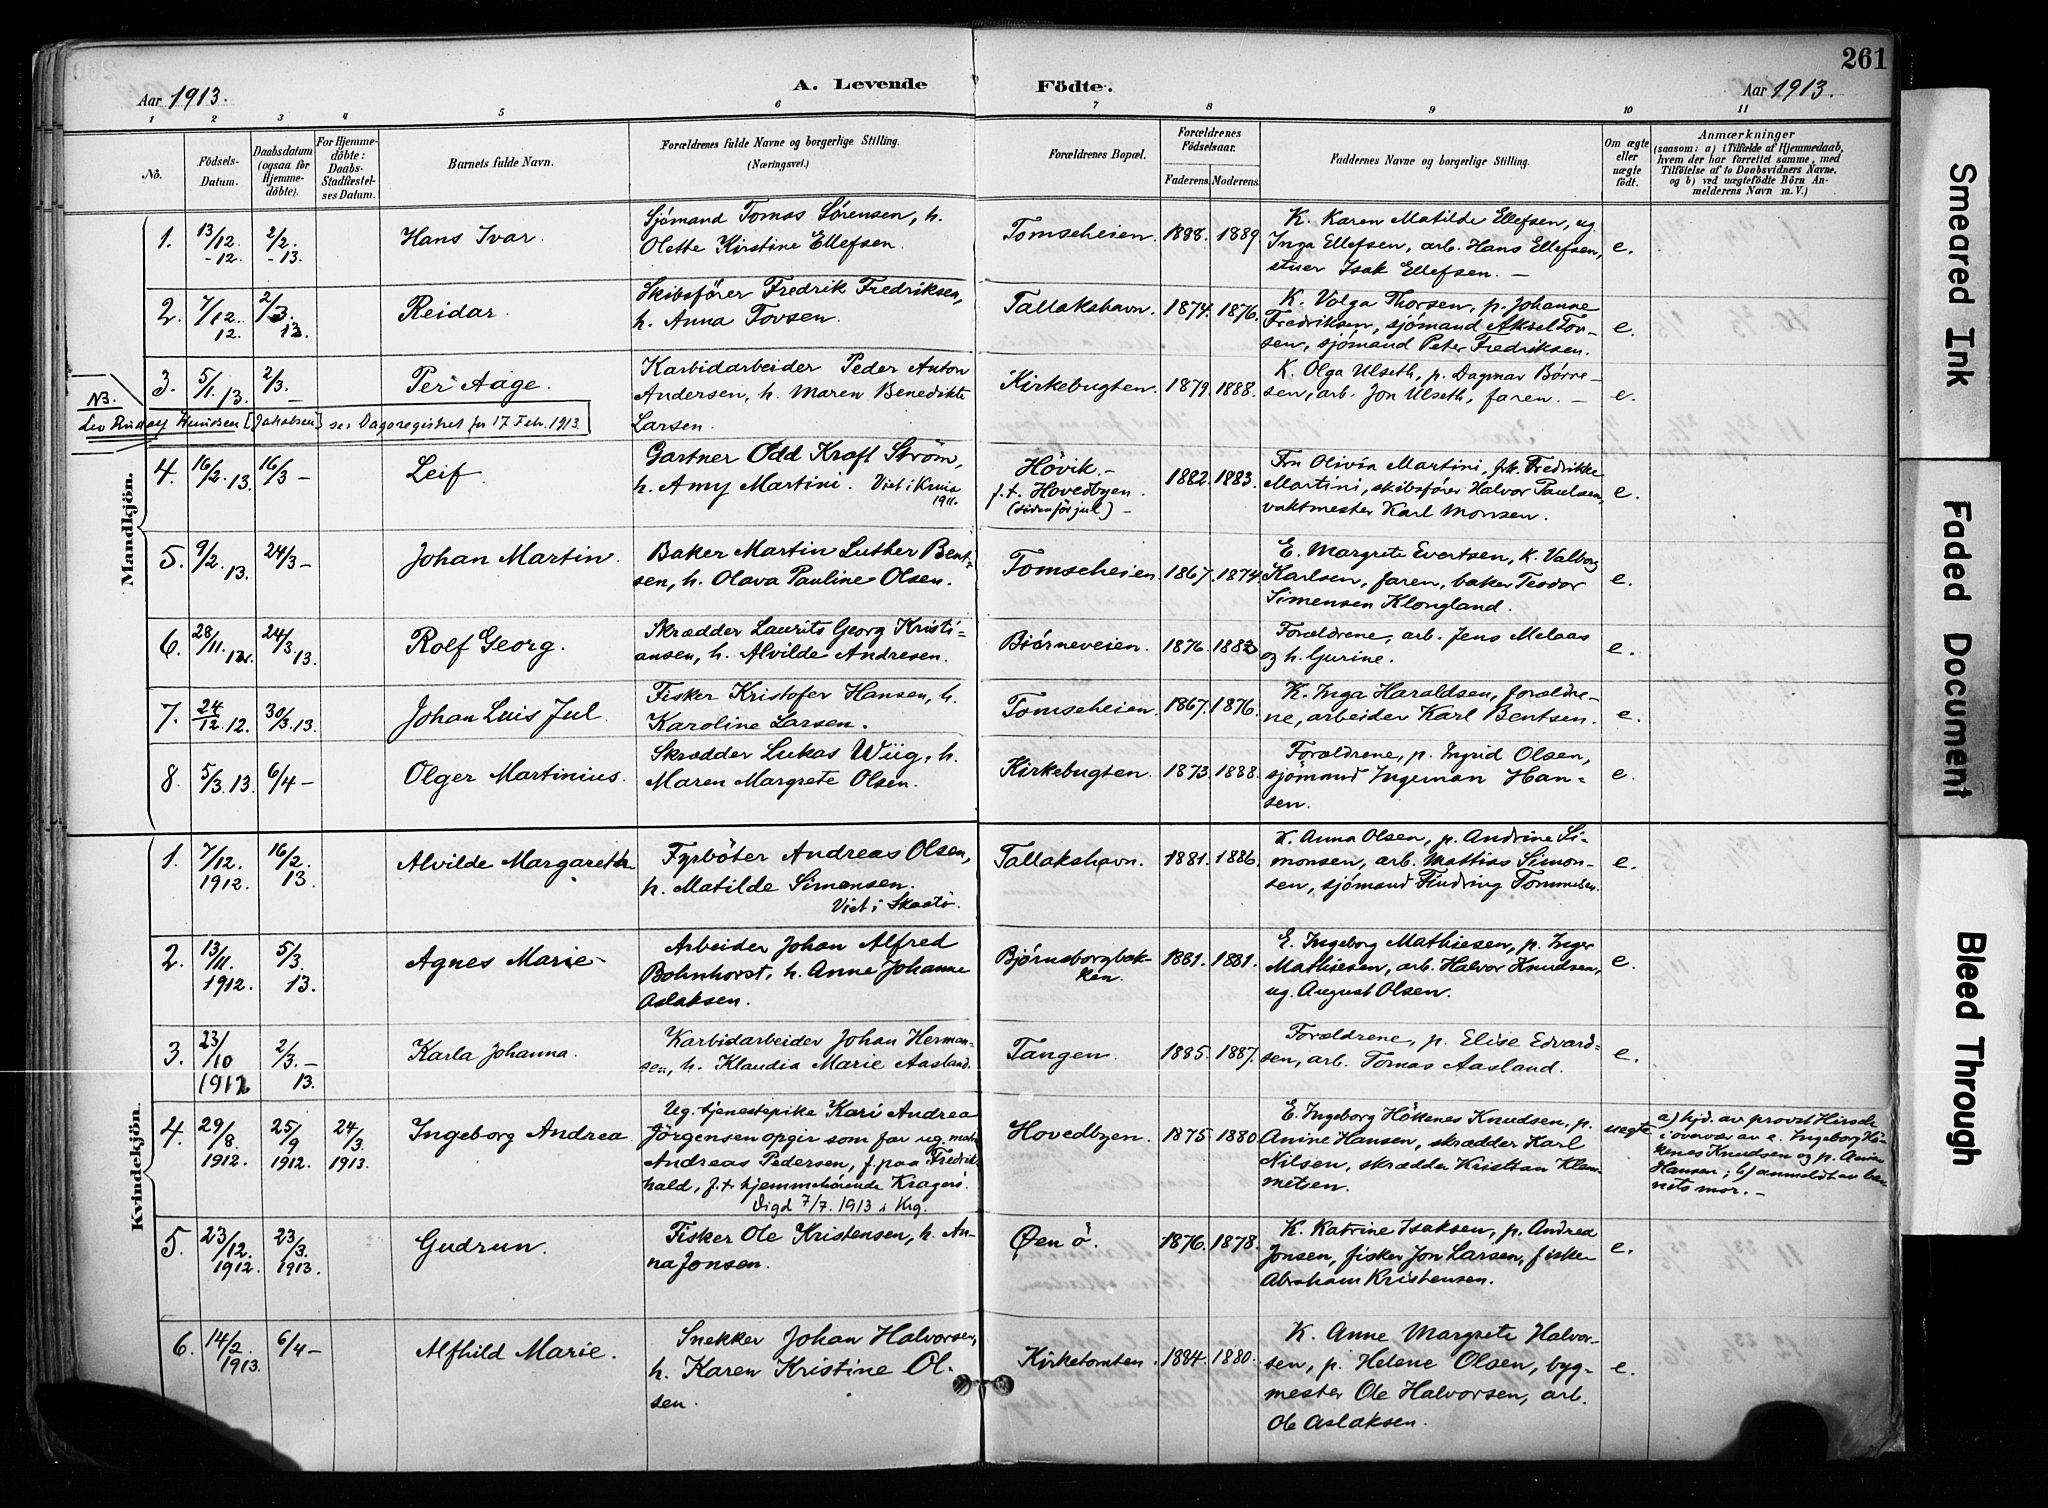 261
A. Levende Födte.
Aar 1913.
Aar 1913.
1 2 3 4 5 6 7 8 9 10 11
No.
Födsels-Datum.
Daabsdatum (ogsaa for Hjemme-döbte).
For Hjemme-döbte: Daabs-Stadfæstel-ses Datum.
Barnets fulde Navn.
Forældrenes fulde Navne og borgerlige Stilling.
(Næringsvei.)
Forældrenes Bopæl.
Forældrenes Födselsaar.
Faderens. Moderens.
Faddernes Navne og borgerlige Stilling.
Om ægte eller uægte födt.
Anmærkninger
(saasom: a) i Tilfælde af Hjemmedaab,
hvem der har forrettet samme, med
Tilföielse af to Daabsvidners Navne,
og b) ved uægtefödte Börn An-
melderens Navn m. V.)
Mandkjön.
1. 13/12 -12. 2/2. -13. Hans Ivar. Sjömand Tomas Sörensen, h. Olette Kirstine Ellefsen. Tomseheien. 1888. 1889 K. Karen Matilde Ellefsen, ug. Inga Ellefsen, arb. Hans Ellefsen, stuer Isak Ellefsen. — e.
2. 7/12. 12. 2/3. 13. Reidar. Skibsförer Fredrik Fredriksen, h. Anna Tovsen. Tallakshavn. 1874. 1876. K. Volga Thorsen, p. Johanne Fredriksen, sjömand Aksel Tov-sen, sjömand Peter Fredriksen. e.
3. 5/1. 13. 2/3. — Per Aage. Karbidarbeider Peder Anton Andersen, h. Maren Benedikte Larsen. Kirkebugten. 1879. 1888. K. Olga Ulseth, p. Dagmar Börre-sen, arb. Jon Ulseth, faren. — e.
NB.
Knudsen [Jakobsen] se Dagsregistret for 17 Febr. 1913.
4. 16/2. 13. 16/3 — Leif. Gartner Odd Kraft Ström, h. Amy Martini. Viet i 1911. Hövik. — f.t. Hovedbyen. (sidenför jul) — 1882. 1883. Fru Olivia Martini, frk. Fredrikke Martini, skibsförer Halvor Paulsen, vaktmester Karl Monsen. e.
5. 9/2. 13. 24/3 — Johan Martin. Baker Martin Luther Bent-sen, h. Olava Pauline Olsen. Tomseheien. 1867. 1874. E. Margrete Evertsen, K. Valborg Karlsen, faren, baker Teodor Simensen Klongland. e.
6. 28/11. 12. 24/3. 13. Rolf Georg. Skrædder Laurits Georg Kristi-ansen, h. Alvilde Andresen. Biörneveien. 1876. 1883 Forældrene, arb. Jens Melaas og h. Gurine. e.
7. 24/12. 12. 30/3. 13. Johan Luis Jul. Fisker Kristofer Hansen, h. Karoline Larsen. Tomseheien. 1867. 1876. K. Inga Haraldsen, forældre-ne, arbeider Karl Bentsen. e.
8. 5/3. 13. 6/4 — Olger Martinius. Skrædder Lukas Wiig, h. Maren Margrete Olsen. Kirkebugten. 1873. 1888. Forældrene, p. Ingrid Olsen, sjömand Ingeman Han-sen. e.
Kvindekjön.
1. 7/12. 1912. 16/2. 13. Alvilde Margareth Fyrböter Andreas Olsen, h. Matilde Simonsen. Viet i Skaatö. Tallakshavn. 1881. 1886. K. Anna Olsen, p. Andrine Si-monsen, arb. Mathias Simon-sen, sjömand Findring Tommesen. e.
2. 13/11. 1912. 5/3. 13. Agnes Marie — Arbeider Johan Alfred Bohnhorst, h. Anne Johanne Aslaksen. Bjørnsborgbak-ken. 1881. 1881. E. Ingeborg Mathiesen, p. Inger Mathiesen, arb. Halvor Knudsen, ug. August Olsen. e.
3. 23/10 1912 2/3. — 13. Karla Johanna. Karbidarbeider Johan Herman-sen, h. Klaudia Marie Aasland. Tangen. 1885. 1887. Forældrene, p. Elise Edvard-sen, arb. Tomas Aasland. e.
4. 29/8. 1912. 25/9 1912. 24/3. 1913. Ingeborg Andrea Ug. tjenestepike Kari Andrea Jörgensen opgir som far ug. matr. Andreas Pedersen, f. paa Fredrik-hald, f.t. hjemmehörende Kragerö. Vigd 7/7. 1913 i Krg. Hovedbyen. 1875 1880 E. Ingeborg Hökenes Knudsen, p. Anine Hansen, skrædder Karl Nilsen, skrædder Kristian Klem-metsen. uægte a) hjd. av provst Hirsch i overvær av e. Ingeborg Hö-kenes Knudsen og p. Anine Hansen; b) anmeldt av bar-nets mor. —
5. 23/12. 1912. 23/3. 1913. Gudrun. Fisker Ole Kristensen, h. An-na Jonsen. Øen ö. 1876. 1878. K. Katrine Isaksen, p. Andrea Jonsen, fisker Jon Larsen, fisker Abraham Kristensen. e.
6. 14/2. 1913. 6/4 — Alfhild Marie. Snekker Johan Halvorsen, h. Karen Kristine Ol-sen. Kirketomten. 1884. 1880. K. Anne Margrete Halvor-sen, p. Helene Olsen, byg-mester Ole Halvorsen, arb. Ole Aslaksen. e.
Smeared Ink
Faded Document
Bleed Through